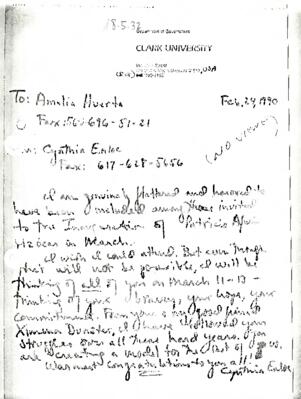 18.5.32
Department of Government
CLARK UNIVERSITY
USA
To: Amalia Huerta Feb. 24, 1990
Fax: 56-696-51-21
(NO
Cynthia Enloe
Fax: 617-628-5656
I am genuinely flattered and honored to
have been included among those invited
to the Inauguration of Patricio
in March.
I wish I could attend. But even though
that will not be possible, I will be
thinking of all of you on March 11-13-
thinking of your bravery, your hope, your
commitment. From you and my good friend
Ximena Bunster, I have followed your
struggles over all these hard years. You
are creating a model for the rest of us.
Warmest congratulations to you all!
Cynthia Enloe